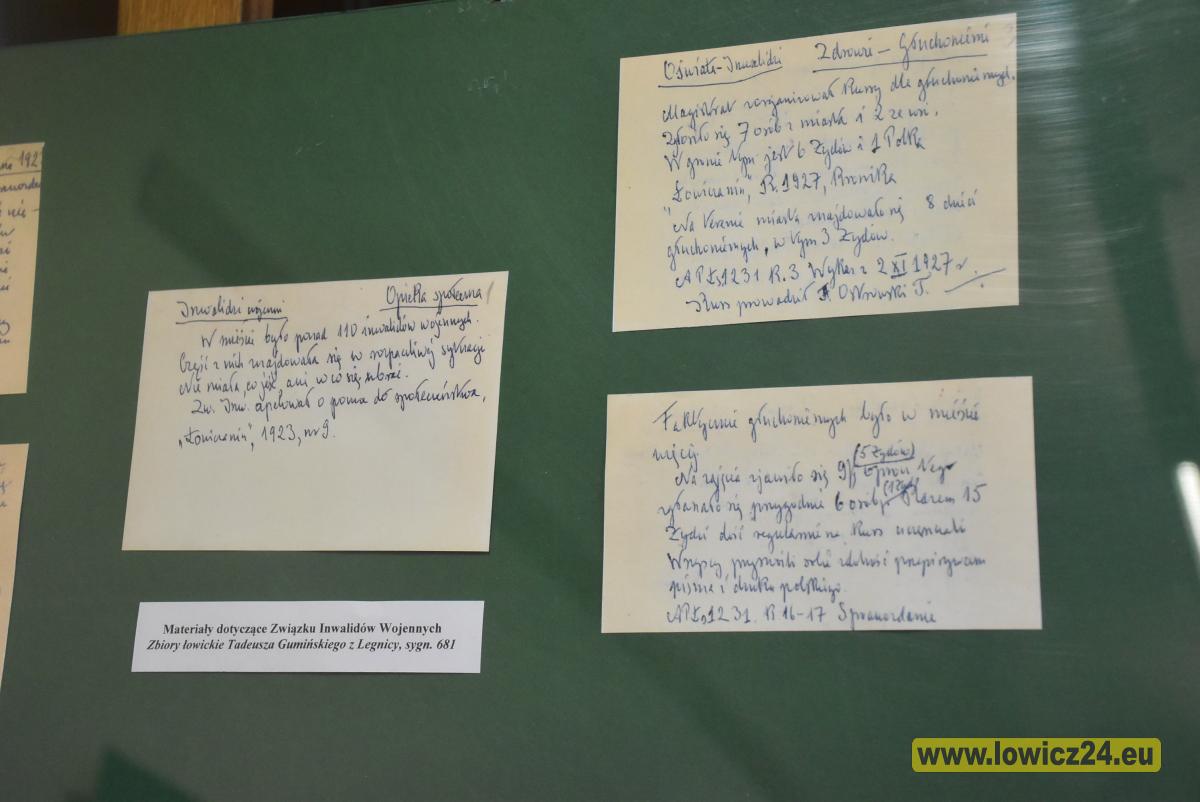 Inwalidzi wojenni Opieka społeczna
W mieście było ponad 110 inwalidów wojennych.
Część z nich znajdowała się w rozpaczliwej sytuacji
Nie miała co jeść, ani w co się ubrać.
Zw. Inw. apelował o pomoc do społeczeństwa,
„Łowiczanin", 1923, nr 9.
Materiały dotyczące Związku Inwalidów Wojennych
Zbiory łowickie Tadeusza Gumińskiego z Legnicy, sygn. 681
Oświata-Inwalidzi Zdrowie – Głuchoniemi
Magistrat zorganizował kursy dla głuchoniemych.
Zgłosiło się 7 osób z miasta i 2 ze wsi.
W gronie tym jest 6 Żydów i 1 Polka
„Łowiczanin", R. 1927, Kronika
Na terenie miasta znajdowało się 8 dzieci
głuchoniemych, w tym 3 Żydów.
APŁ, 1231 K. 3 Wykaz z 2 XI 1927 r.
Kurs prowadził Ostrowski T.
Faktycznie głuchoniemych było w mieście
więcej.
Na zajęcia zjawiło się 9 (5 Żydów)
przygodnie 6 osób Razem 15
Żydzi dość regularnie na kurs uczęszczali
Wszyscy przyswoili sobie zdolność przepisywania
pisma i druku polskiego.
APŁ, 1231. K. 16-17 Sprawozdanie
192
www.lowicz24.eu